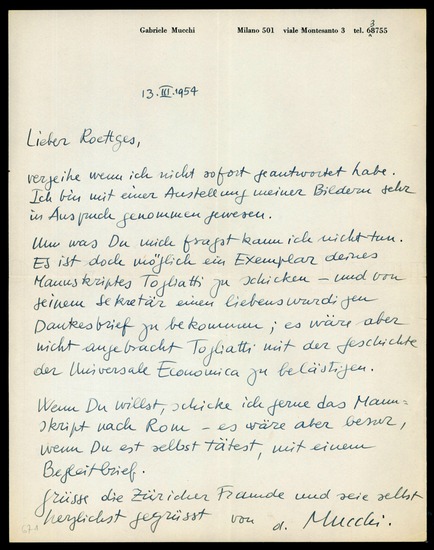 Gabriele Mucchi
Milano 501 viale Montesanto 3 tel. 63755
13.III.1954
Lieber Roettges,
verzeihe wenn ich nicht sofort geantwortet habe.
Ich bin mit einer Austellung meiner Bildern sehr
in Anspruch genommen gewesen.
Um was Du mich fragst kann ich nicht tun.
Es ist doch möglich ein Exemplar deines
Manuskriptes Togliatti zu schicken – und von
seinem Sekretär einen liebenswürdigen
Dankesbrief zu bekommen; es wäre aber
nicht angebracht Togliatti mit der Geschichte
der Universale Economica zu belästigen.
Wenn Du willst, schicke ich gerne das Manu=
skript nach Rom – es wäre aber besser,
wenn Du est selbst tätest, mit einem
Begleitbrief.
Grüsse die Züricher Freunde und seie selbst
herzlichst gegrüsst von d. Mucchi.